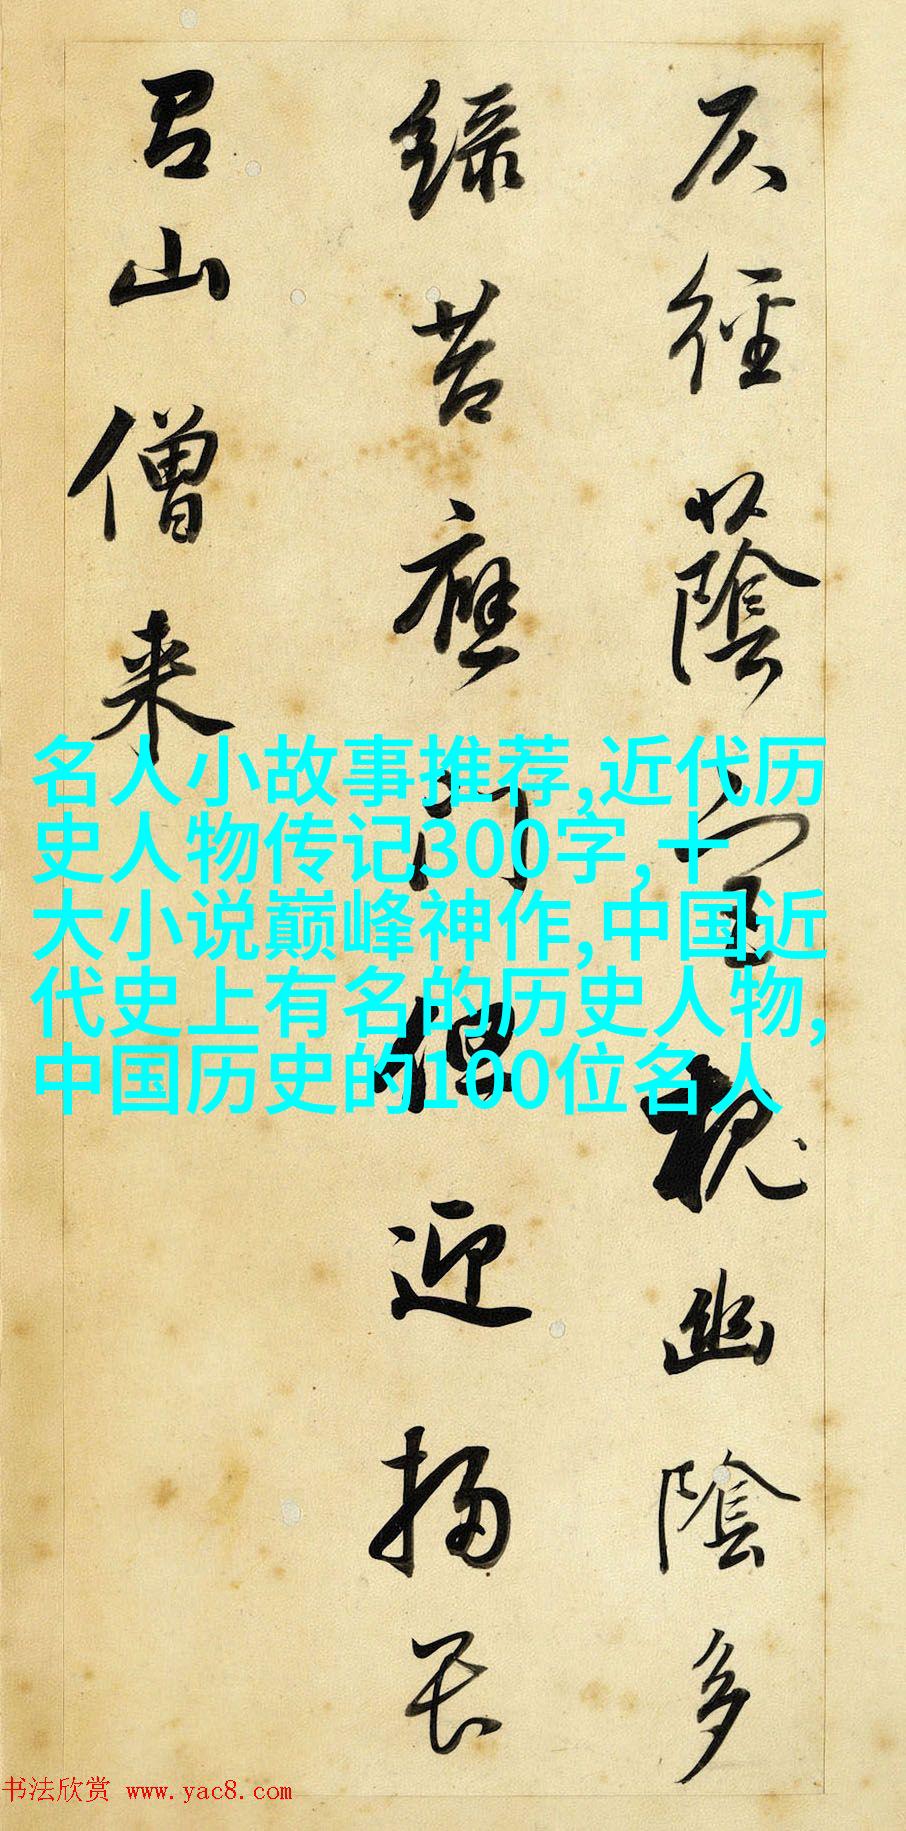 仄徑蔭宮槐幽陰多
綠苔應門但迎掃畏
有山僧来
名人小故事推荐,近代历
史人物传记300字,十
大小说巅峰神作,中国近
代史上有名的历史人物,
中国历史的100位名人
书法欣赏 www.yac8.com